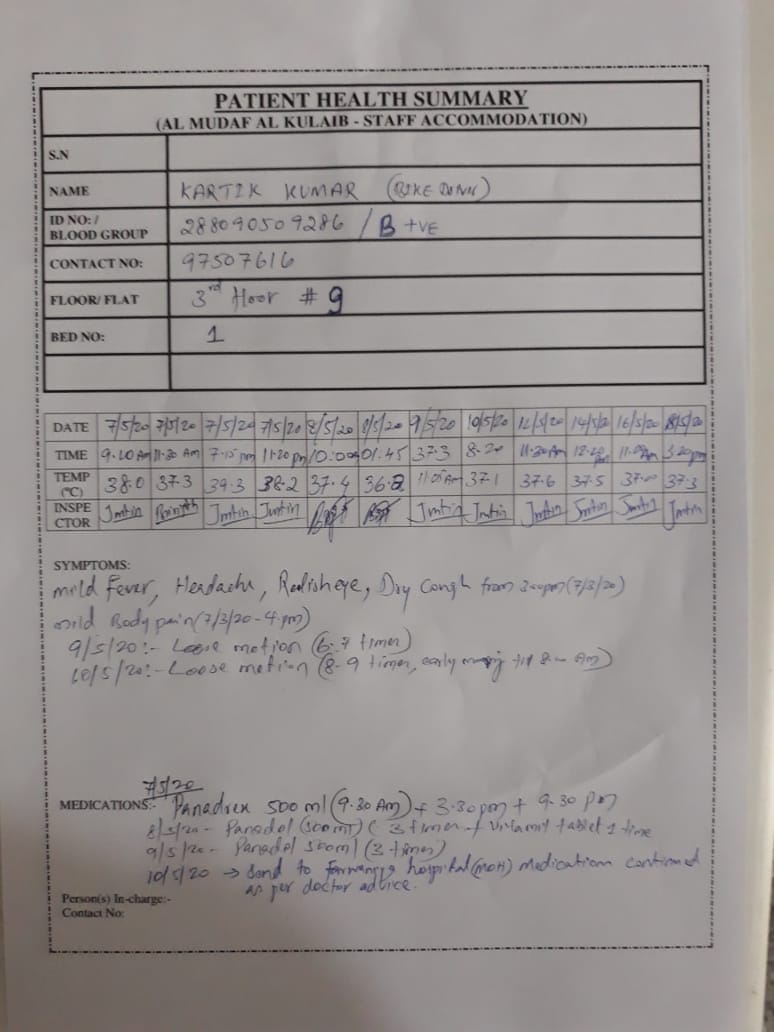 PATIENT HEALTH SUMMARY
(AL MUDAF AL KULAIB - STAFF ACCOMMODATION)
S.N
NAME KARTIK KUMAR
ID NO: / BLOOD GROUP 288090509286 / B +VE
CONTACT NO: 97507616
FLOOR/ FLAT 3rd floor # 9
BED NO: 1
DATE 7/5/20 7/5/20 7/5/20 7/5/20 8/5/20 8/5/20 9/5/20 10/5/20 12/5/20 14/5/20 16/5/20 18/5/20
TIME 9.20 Am 11.30 Am 7.15 pm 11.20 pm 10:00 01.45 37.3 8.20 11.30 Am 12.20 pm 11.00 Am 3.20 pm
TEMP (°C) 38.0 37.3 39.3 38.2 37.4 36.2 11:00 Am 37.1 37.6 37.5 37.00 37.3
INSPE CTOR
SYMPTOMS:
mild Fever, Headache, Redisheye, Dry Cough from 3:00pm (7/3/20)
mild Body pain (7/3/20 - 4.pm)
9/5/20:- Loose motion (6-7 times)
10/5/20:- Loose motion (8-9 times, early till 8 Am)
7/5/20
MEDICATIONS:- Panadrex 500 ml (9.30 Am) + 3.30 pm + 9.30 pm
8/5/20 - Panadol (500 ml) ( 3 times + vitamit tablet 1 time
9/5/20 - Panadol 500ml (3 times)
10/5/20 → Send to hospital (MOH) medication continued
as per doctor advice.
Person(s) In-charge:-
Contact No: